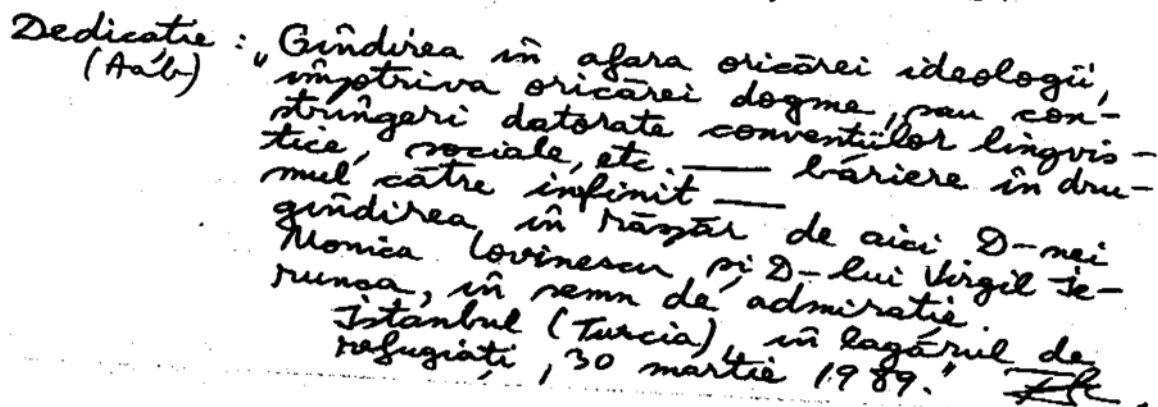 Dedicație : „Gîndirea în afara oricărei ideologii,
(Aáb) împotriva oricărei dogme, sau con-
strîngeri datorate convențiilor lingvis-
tice, sociale, etc. — bariere în dru-
mul către infinit —
gîndirea în răspăr de aici D-nei
Monica Lovinescu și D-lui Virgil Ie-
runca, în semn de admirație.
Istanbul (Turcia), în lagărul de
refugiați, 30 martie 1989."